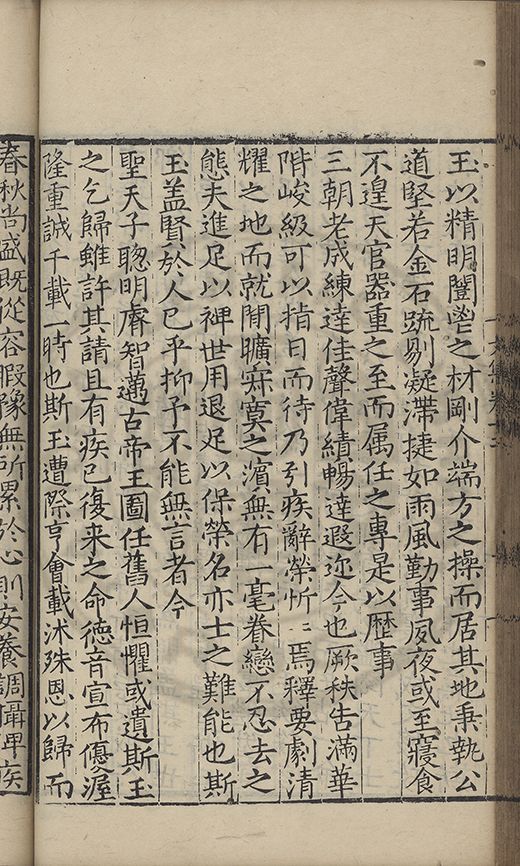 玉以精明闓鬯之材剛介端方之操而居其地秉執公
道堅若金石疏剔凝滯捷如雨風勤事夙夜或至寢食
不遑天官器重之至而属任之專是以歷事
三朝老成練達佳聲偉績暢達遐迩今也厥秩告滿華
階峻級可以指日而待乃引疾辭榮忻〻焉釋要劇清
耀之地而就閒曠寂寞之濱無有一毫眷戀不忍去之
態夫進足以裨世用退足以保榮名亦士之難能也斯
玉盖賢於人已乎抑予不能無言者今
聖天子聰明睿智邁古帝王圖任舊人恒懼或遺斯玉
之乞歸雖許其請且有疾已復来之命徳音宣布優渥
隆重誠千載一時也斯玉遭際亨會載沐殊恩以歸而
春秋尚盛既從容暇豫無所累於心則安養調攝俾疾